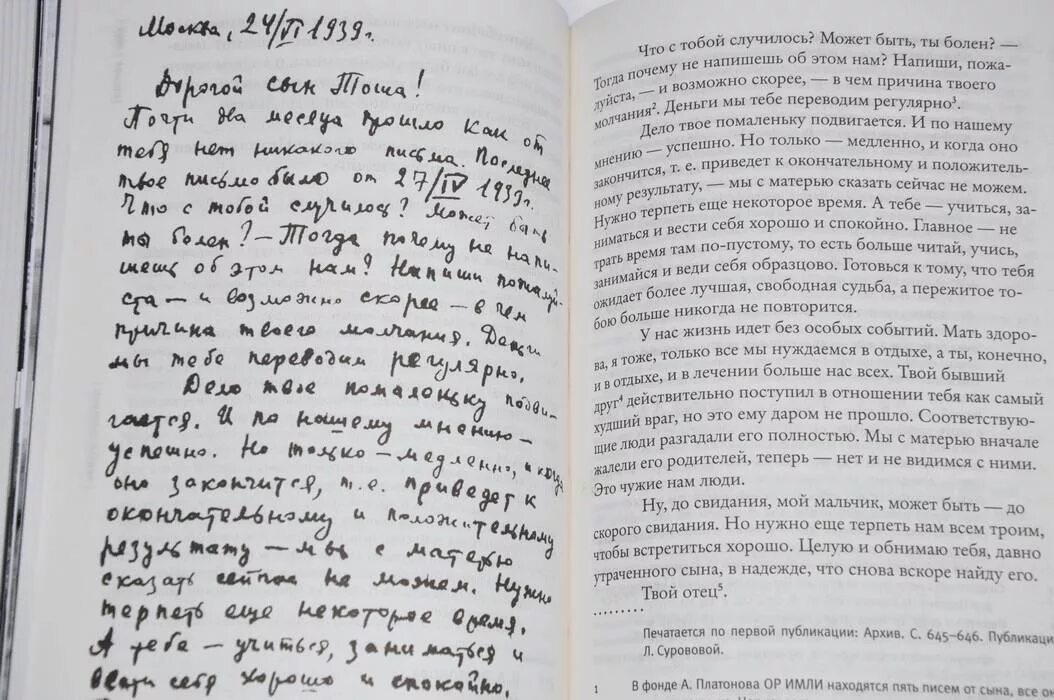 Москва, 24/VI 1939 г.
Дорогой сын Тоша!
Почти два месяца прошло как от
тебя нет никакого письма. Последнее
твое письмо было от 27/IV 1939 г.
Что с тобой случилось? Может быть
ты болен? – Тогда почему не напи-
шешь об этом нам? Напиши пожалуй-
ста – и возможно скорее – в чем
причина твоего молчания. Деньги
мы тебе переводим регулярно.
Дело твое помаленьку подви-
гается. И по нашему мнению –
успешно. Но только – медленно, и когда
оно закончится, т.е. приведет к
окончательному и положительному
результату – мы с матерью
сказать сейчас не можем. Нужно
терпеть еще некоторое время.
А тебе – учиться, заниматься и
вести себя хорошо и спокойно.
Что с тобой случилось? Может быть, ты болен? —
Тогда почему не напишешь об этом нам? Напиши, пожа-
луйста, — и возможно скорее, — в чем причина твоего
молчания². Деньги мы тебе переводим регулярно³.
Дело твое помаленьку подвигается. И по нашему
мнению — успешно. Но только — медленно, и когда оно
закончится, т. е. приведет к окончательному и положитель-
ному результату, — мы с матерью сказать сейчас не можем.
Нужно терпеть еще некоторое время. А тебе — учиться, за-
ниматься и вести себя хорошо и спокойно. Главное — не
трать время там по-пустому, то есть больше читай, учись,
занимайся и веди себя образцово. Готовься к тому, что тебя
ожидает более лучшая, свободная судьба, а пережитое то-
бою больше никогда не повторится.
У нас жизнь идет без особых событий. Мать здоро-
ва, я тоже, только все мы нуждаемся в отдыхе, а ты, конечно,
и в отдыхе, и в лечении больше нас всех. Твой бывший
друг⁴ действительно поступил в отношении тебя как самый
худший враг, но это ему даром не прошло. Соответствую-
щие люди разгадали его полностью. Мы с матерью вначале
жалели его родителей, теперь — нет и не видимся с ними.
Это чужие нам люди.
Ну, до свидания, мой мальчик, может быть — до
скорого свидания. Но нужно еще терпеть нам всем троим,
чтобы встретиться хорошо. Целую и обнимаю тебя, давно
утраченного сына, в надежде, что снова вскоре найду его.
Твой отец⁵.
.........
Печатается по первой публикации: Архив. С. 645–646. Публикаци
Л. Сурововой.
1 В фонде А. Платонова ОР ИМЛИ находятся пять писем от сына, все он